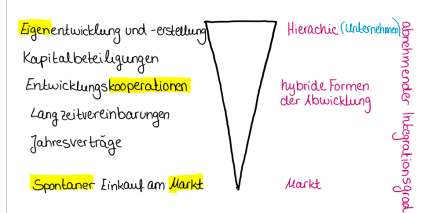 Eigenentwicklung und -erstellung
Hierachie (Unternehmen)
Kapitalbeteiligungen
Entwicklungskooperationen
hybride Formen
der Abwicklung
Langzeitvereinbarungen
Jahresverträge
Spontaner Einkauf am Markt
Markt
abnehmender Integrationsgrad